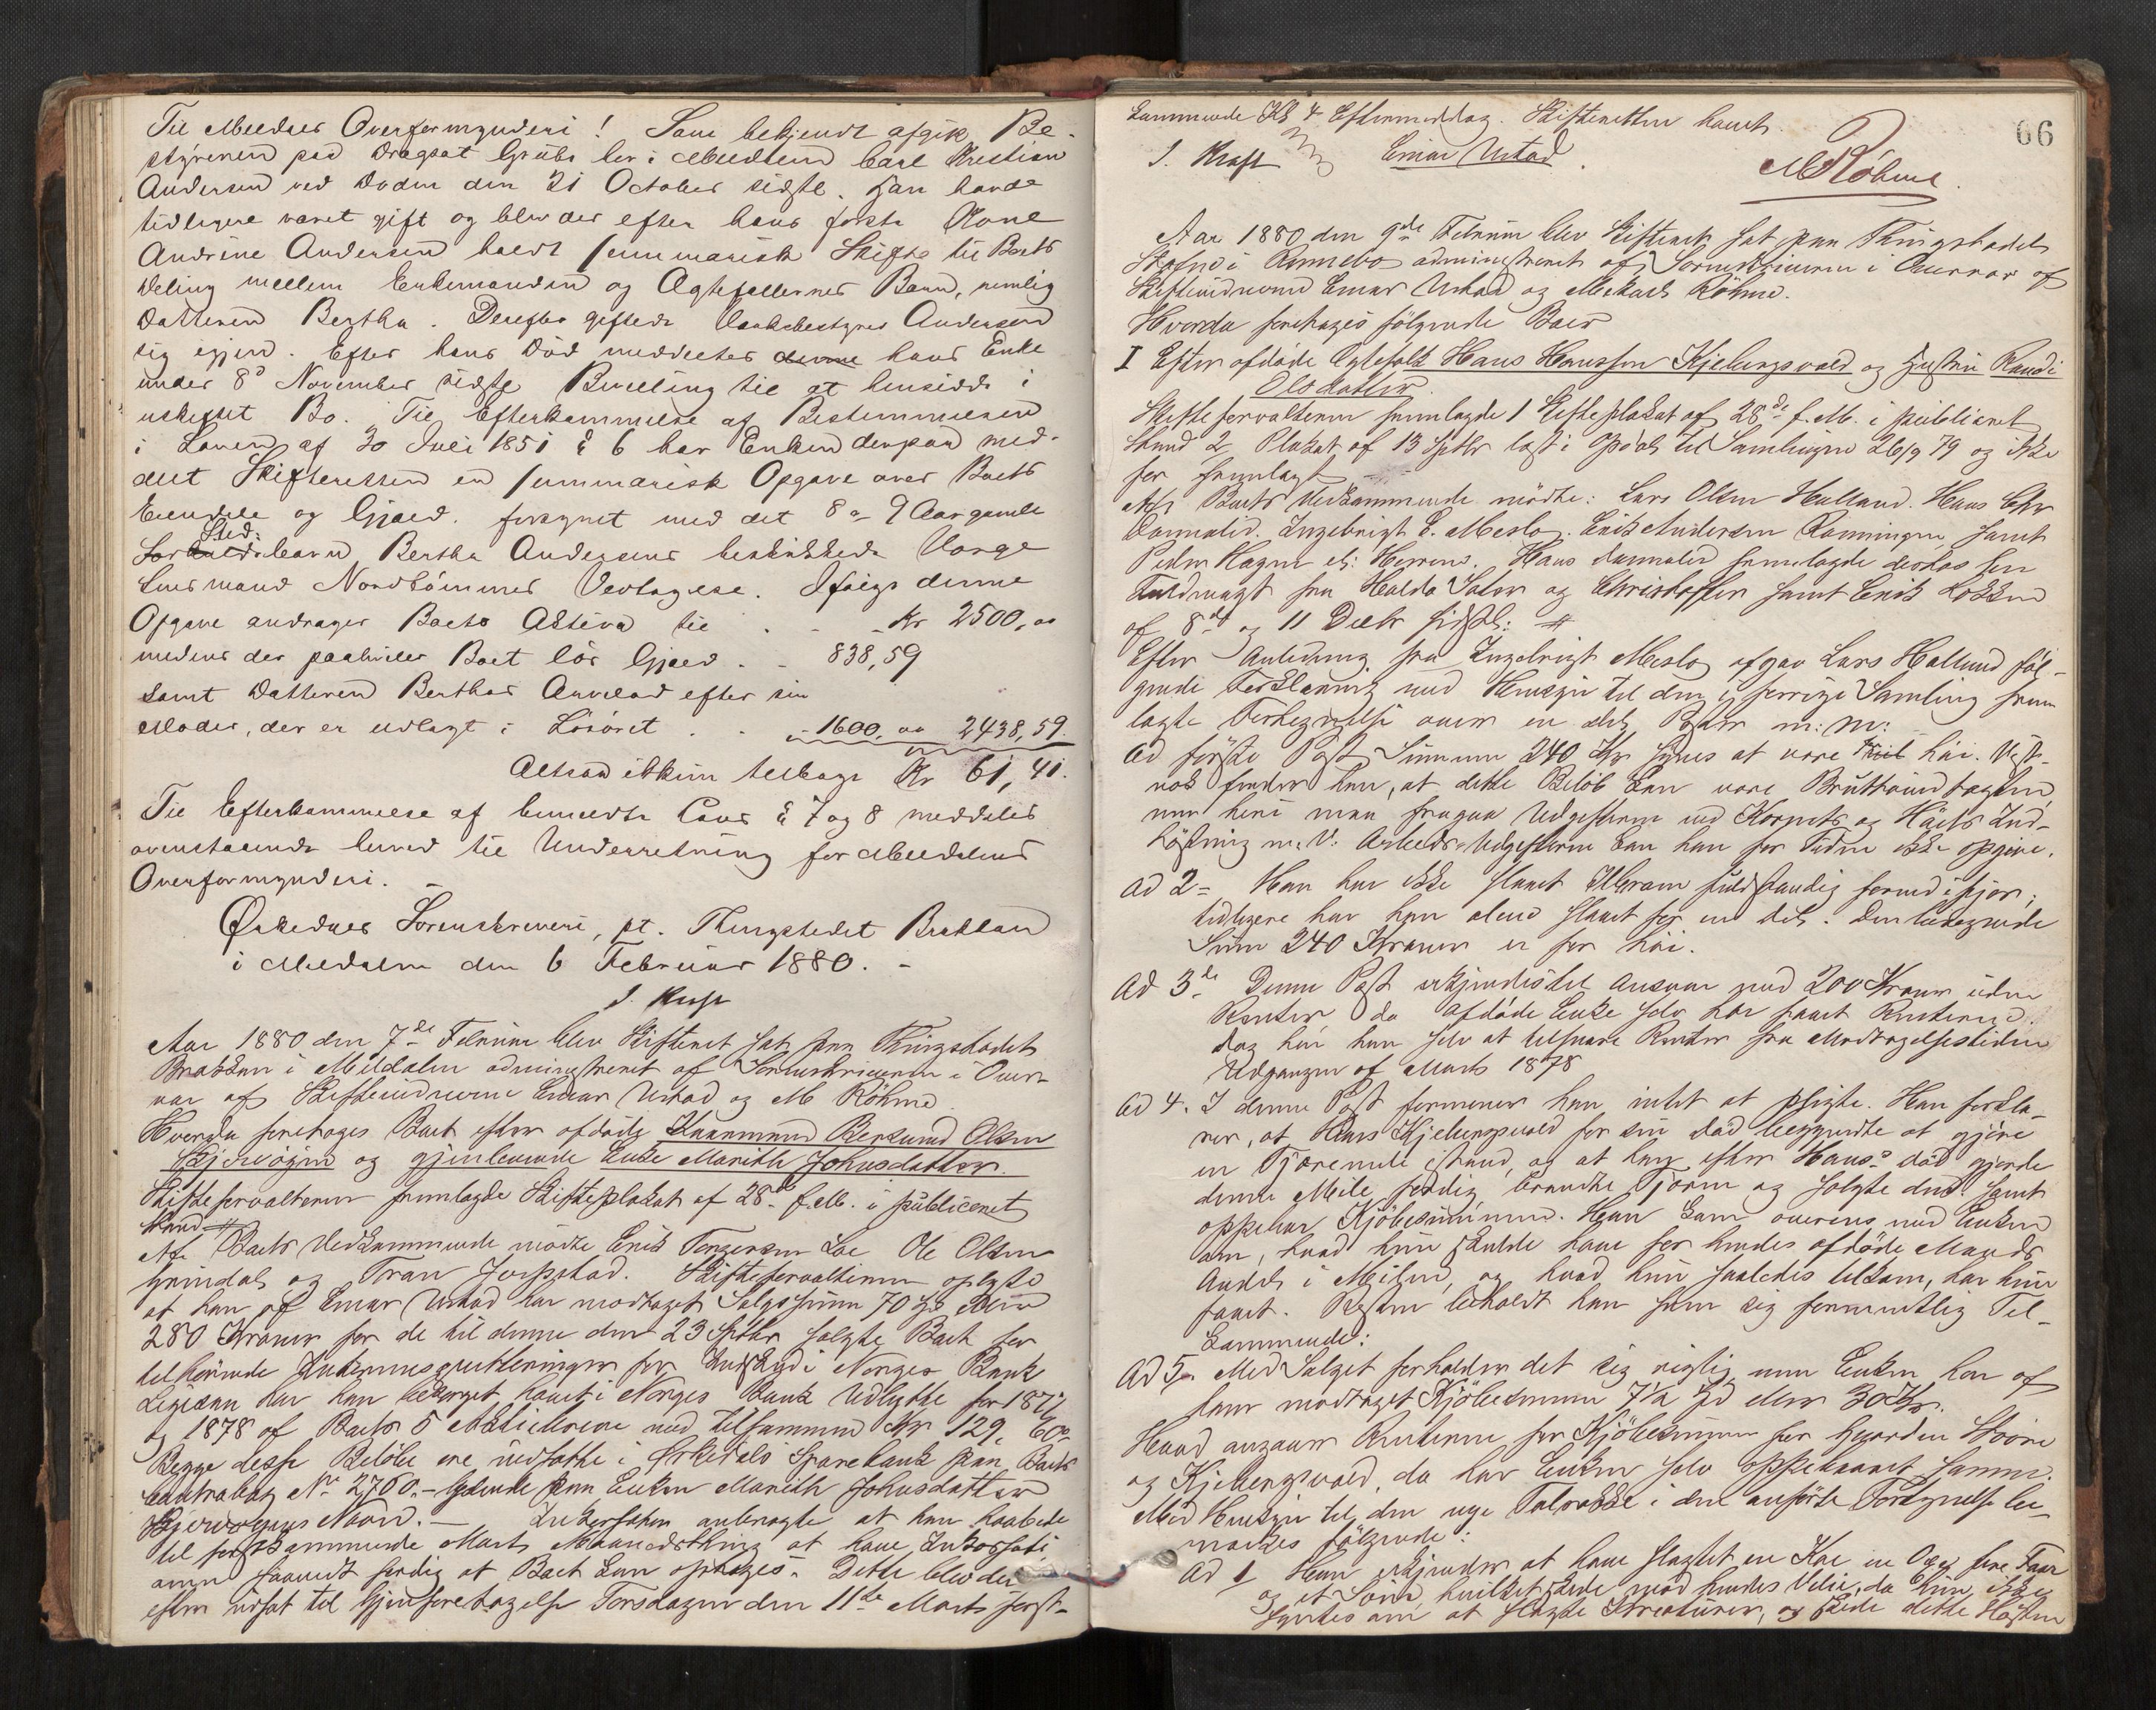 Til Meldals Overformynderi! Som bekjendt afgik Be-
styreren paa Dragset Grube her i Meldalen Carl Kristian
Andersen ved Døden den 21 October sidstl. Han havde
tidligere været gift og blev der efter hans første Kone
Andrine Andersen holdt summarisk Skifte til Boets
Deling mellem Enkemanden og Ægtefællernes Barn, nemlig
Datteren Bertha. Derefter giftede Værksbestyrer Andersen
sig igjen. Efter hans Død meddeltes denne hans Enke
under 8d November sidstl Bevilling til at hensidde i
uskiftet Bo. Til Efterkommelse af Bestemmelsen
i Loven af 30 Juli 1851 § 6 har Enken derpaa med-
delt Skifteretten en summarisk Opgave over Boets
Eiendele og Gjæld, forsynet med det 8 a 9 Aar gamle
Sted:
barn Bertha Andersens beskikkede Værge
Lensmand Nordtømmes Vedtagelse. Ifølge denne
Opgave andrager Boets Aktiva til . . Kr 2500,00
medens der paahviler Boet løs Gjæld . - 838,59
samt Datteren Berthas Arvelod efter sin
Moder, der er udlagt i Løsøret . . - 1600,00 2438,59.
Altsaa ikkun tilbage Kr 61,41.
Til Efterkommelse af bemeldte Lovs § 7 og 8 meddeles
ovenstaaende herved til Underretning for Meldalens
Overformynderi. -
Ørkedals Sorenskriveri, pt. Thingstedet Brakkan
i Meldalen den 6 Februar 1880. -
J. Kraft
Aar 1880 den 7de Februar blev Skifteret sat paa Thingstedet
Brakkan i Meldalen administreret af Sorenskriveren i Over-
vær af Skiftevidnerne Einar Ustad og M Röhme
Hvorda foretoges Boet efter afdøde Baarmand Bersvend Olsen
Bjerkøien og gjenlevende Enke Marith Johnsdatter.
Skifteforvalteren fremlagde Skifteplakat af 28de f. M. i publiceret
Stand #
Af Boets Vedkommende mødte Erik Torgersen Loe Ole Olsen
Grindal og Tran Jerpstad. Skifteforvalteren oplyste
at han af Einar Ustad har modtaget Salgssum 70 Spd eller
280 Kroner for de til denne den 23 Septbr solgte Boet her
tilhørende for Indskud i Norges Bank
Ligesaa har han besørget hævet i Norges Bank Udbytte for 1877
og 1878 af Boets 5 Aktiebreve med tilsammen Kr 129, 60.
Begge disse Beløbe ere indsatte i Ørkedals Sparebank paa Boets
Contrabog No 2760. - lydende paa Enken Marith Johnsdatter
Navn. - anbragte at han haabede
til førstkommende Marts Maanedsthing at have
saavidt færdig at Boet kan optages. Dette blev der
efter udsat til Gjenforetagelse Torsdagen den 11te Marts først-
kommende Kl 4 Eftermiddag. Skifteretten hævet.
J. Kraft Einar Ustad. M Röhme.
66
Aar 1880 den 9de Februar blev Skifteret sat paa Thingstedet
i Rennebo administreret af Sorenskriveren i Overvær af
Skiftevidnerne Einar Ustad og Mekael Röhme.
Hvorda foretoges følgende Boer
I Efter afdøde Ægtefolk Hans Hansen Kjelingsvold og Hustru Randi
Olsdatter.
Skifteforvalteren fremlagde 1 Skifteplakat af 28de f. M. i publiceret
Stand 2 Plakat af 13 Septbr læst i Opdal til Samlingen 26/9 79 og ikke
før fremlagt
Af Boets Vedkommende mødte: Lars Olsen Halland. Hans Chr
Dørmolid. Ingebrigt E. Meslo. Erik Andersen Ramningen samt
Peder Hagen Hans Dørmolid fremlagde desdos sen
Fuldmagt fra Halda Sater og Christoffer samt Erik Løkken
af 8de og 11 Decbr sidstl: #
Efter Anledning fra Ingebrigt Meslo afgav Lars Halland føl-
gende Forklaring med Hensyn til den i forrige Samling frem
lagte Fortegnelse over en del Poster m: m:
Ad første Post Summen 240 Kr synes at være høi. Vist-
nok finder han, at dette Beløb kan være Bruttoindtægten
men heri maa fragaa Udgifterne ved Kornets og Høets Ind-
høstning m. V. Arbeids-Udgifterne kan han for Tiden ikke opgive.
Ad 2 = Han har ikke slaaet fuldstændig førend ifjor;
tidligere har han alene slaaet for en del. Den beregnede
Sum 240 Kroner er for høi.
Ad 3de Denne Post erkjendes til Ansvar med 200 Kroner uden
Renter da afdøde Enke selv har faaet Renterne.
dog har han selv at tilsvare Renter fra Modtagelsestiden
Udgangen af Marts 1878
Ad 4. I denne Post formener han intet at pligte. Han forkla-
rer, at Hans Kjelingsvold før sin Død begyndte at gjøre
en Tjæremile istand, og at han efter Hans's Død gjorde
denne Mile færdig brændte Tjæren og solgte den samt
oppebar Kjøbesummen. Han kom overens med Enken
om, hvad hun skulde have for hendes afdøde Mands
Andel i Milen, og hvad hun saaledes tilkom, har hun
faaet. Resten beholdt han som sig formentlig Til-
kommende:
Ad 5. Med Salget forholder det sig rigtig men Enken har af
ham modtaget Kjøbesummen 7 1/2 Spd eller 30 Kr.
Hvad angaar Renterne for Kjøbesummen for Gaarden
og Kjelingsvold, da har Enken selv oppebaaret samme.
Med Hensyn til den nye Talrække i den anførte Fortegnelse be-
mærkes følgende:
Ad 1 Han erkjender at have slagtet en Ko en Oxe fire Faar
og et Sviin, hvilket skede mod hendes Villie, da hun ikke
syntes om at slagte Kreaturer, og skede dette Høsten